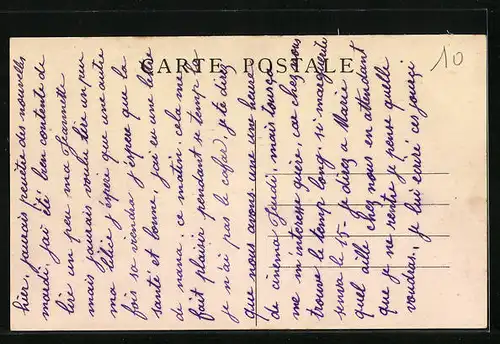 CARTE POSTALE
10
hier, jaurais peutetre des nouvelles
mardi, jai été bien contente de
lire un peu ma Jeannette
mais jaurais voulu lire un peu
ma j'espere que une autre
fois sa viendra j'espere que la
santé et bonne, jai eu une lettre
de nana ce matin, cela me
fait plaisir pendant se temp
je n'ai pas le cafar, je te direz
que nous avons une une heure
de cinema Jeudi, mais tous ça
me m'interesse guère, car chez nous
trouve le temp long, si marguerite
le 15 - je direz a Marie
quel aille chez nous en attendant
que je ne rentre je pense quelle
voudras, je lui ecrire ces